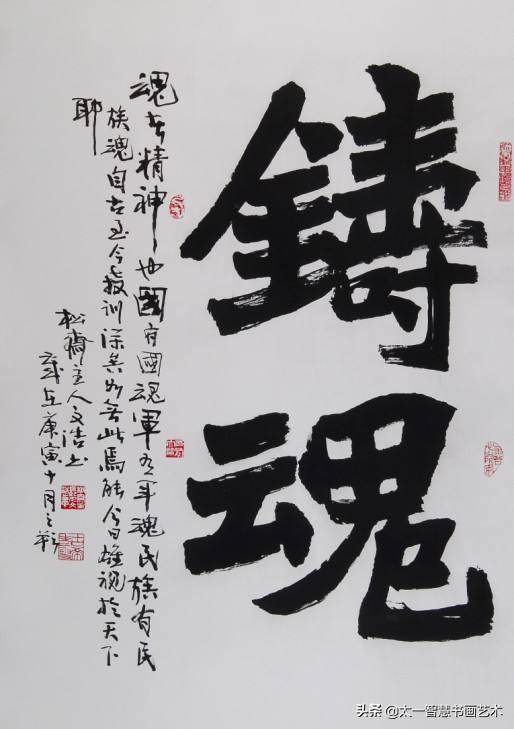 鑄魂
魂者精神也國有國魂軍有軍魂民族有民
族魂自古至今教訓深矣如無此焉能今日雄視於天下
耶
松齋主人文浩书
歲在庚寅十月之
头条 @太一智慧书画艺术